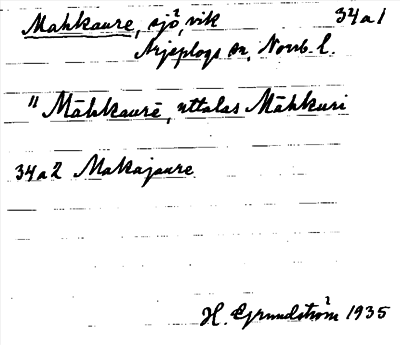 Mahkaure, sjö, vik 34a1
Arjeplogs sn, Norrb. l.
" Māhkaurē, uttalas Māhkuri
34a2 Makajaure
H. Grundström 1935